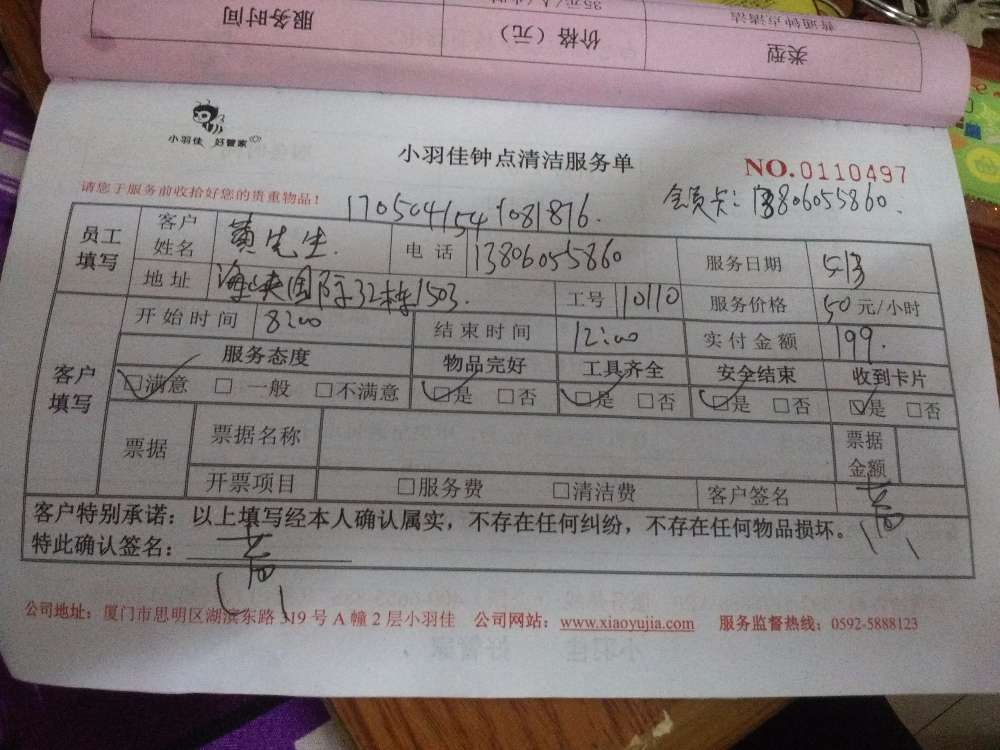 服务时间 价格（元） 类型
35元/人/小时 普通钟点清洁
小羽佳 好管家
小羽佳钟点清洁服务单
NO.0110497
请您于服务前收拾好您的贵重物品！
会员卡：13806055860.
员工填写 客户姓名 黄先生. 电话 13806055860 服务日期 5.13
地址 海峡国际32栋1503. 工号 10110 服务价格 50元/小时
客户填写 开始时间 8:00 结束时间 12:00 实付金额 199.
服务态度 物品完好 工具齐全 安全结束 收到卡片
☑满意 □一般 □不满意 ☑是 □否 ☑是 □否 ☑是 □否 ☑是 □否
票据 票据名称 票据金额
开票项目 □服务费 □清洁费 客户签名
客户特别承诺：以上填写经本人确认属实，不存在任何纠纷，不存在任何物品损坏。
特此确认签名：
公司地址：厦门市思明区湖滨东路319号A幢2层小羽佳 公司网站：www.xiaoyujia.com 服务监督热线：0592-5888123